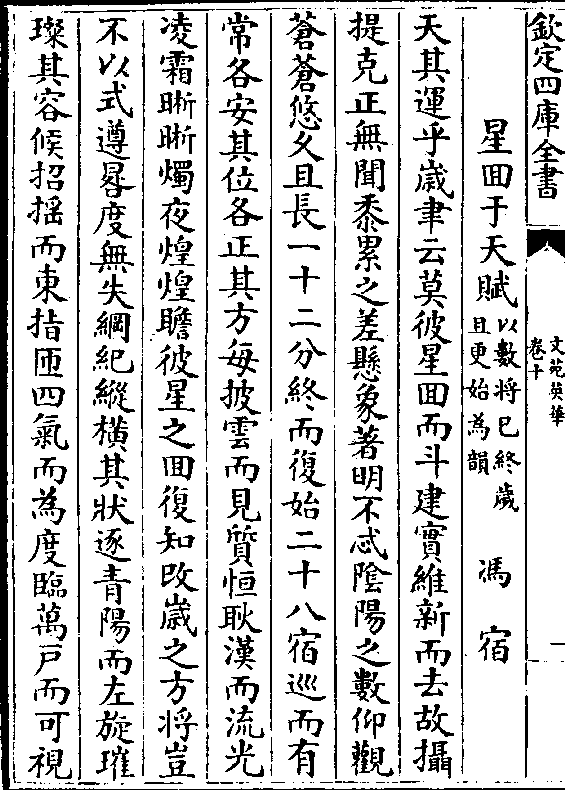 欽定四庫全書
文苑英華
卷十
一
星回于天賦以數將已終歲
且更始為韻
馮宿
天其運乎歲聿云莫彼星回而斗建實維新而去故攝
提克正無聞黍累之差懸象著明不忒隂陽之數仰觀
蒼蒼悠久且長一十二分終而復始二十八宿巡而有
常各安其位各正其方每披雲而見質恒耿漢而流光
凌霜晰晰燭夜煌煌瞻彼星之回復知改歲之方將豈
不以式遵晷度無失綱紀縱橫其狀逐青陽而左旋璀
璨其容候招揺而東指匝四氣而為度臨萬戸而可視